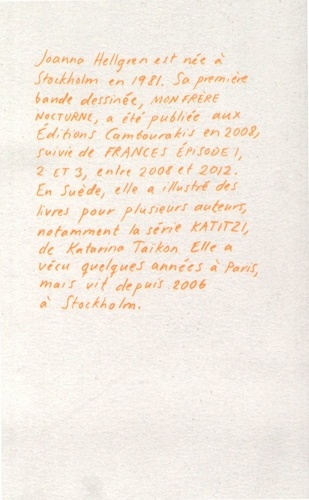 Joanna Hellgren est née à
Stockholm en 1981. Sa première
bande dessinée, MON FRÈRE
NOCTURNE, a été publiée aux
Éditions Cambourakis en 2008,
suivie de FRANCES ÉPISODE 1,
2 ET 3, entre 2008 et 2012.
En Suède, elle a illustré des
livres pour plusieurs auteurs,
notamment la série KATITZI,
de Katarina Taikon. Elle a
vécu quelques années à Paris,
mais vit depuis 2006
à Stockholm.